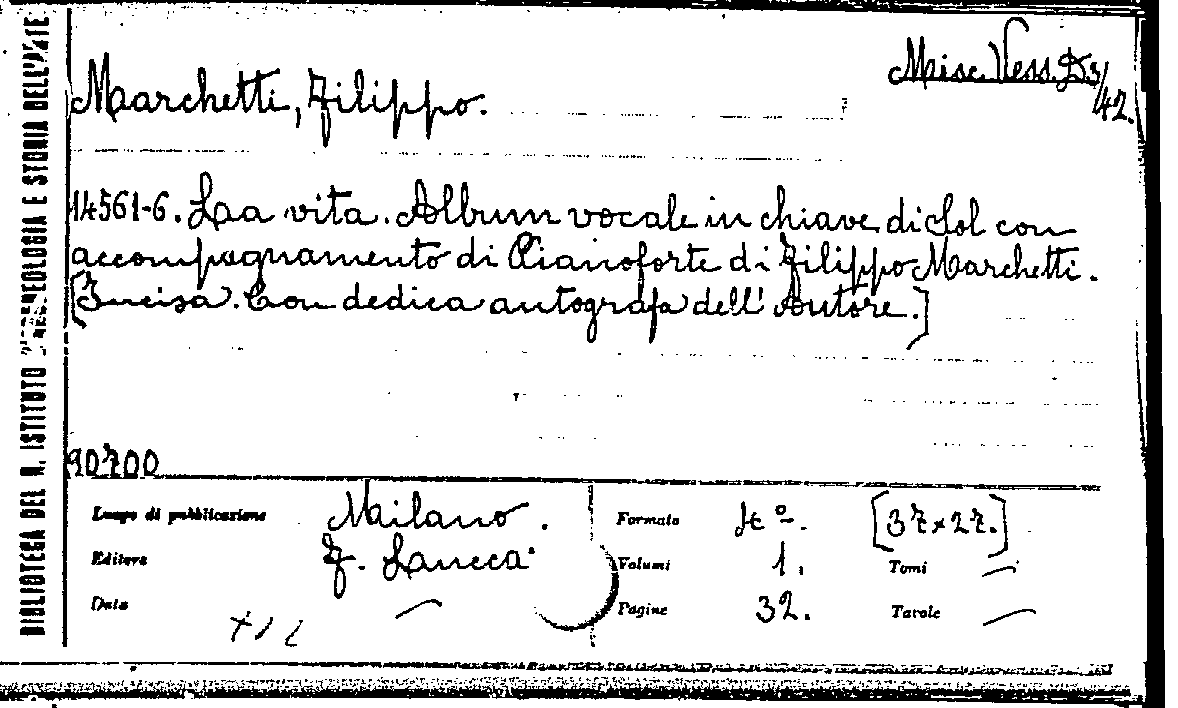 BIBLIOTECA DEL R. ISTITUTO D'ARCHEOLOGIA E STORIA DELL'ARTE
Misc. Vess. D3/42.
Marchetti, Filippo.
14561-6. La vita. Album vocale in chiave di Sol con
accompagnamento di Pianoforte di Filippo Marchetti.
[Incisa. Con dedica autografa dell' Autore.]
90700
Luogo di pubblicazione Milano. Formato 4º. [37×27.]
Editore F. Lucca Volumi 1. Tomi —
Data — Pagine 32. Tavole —